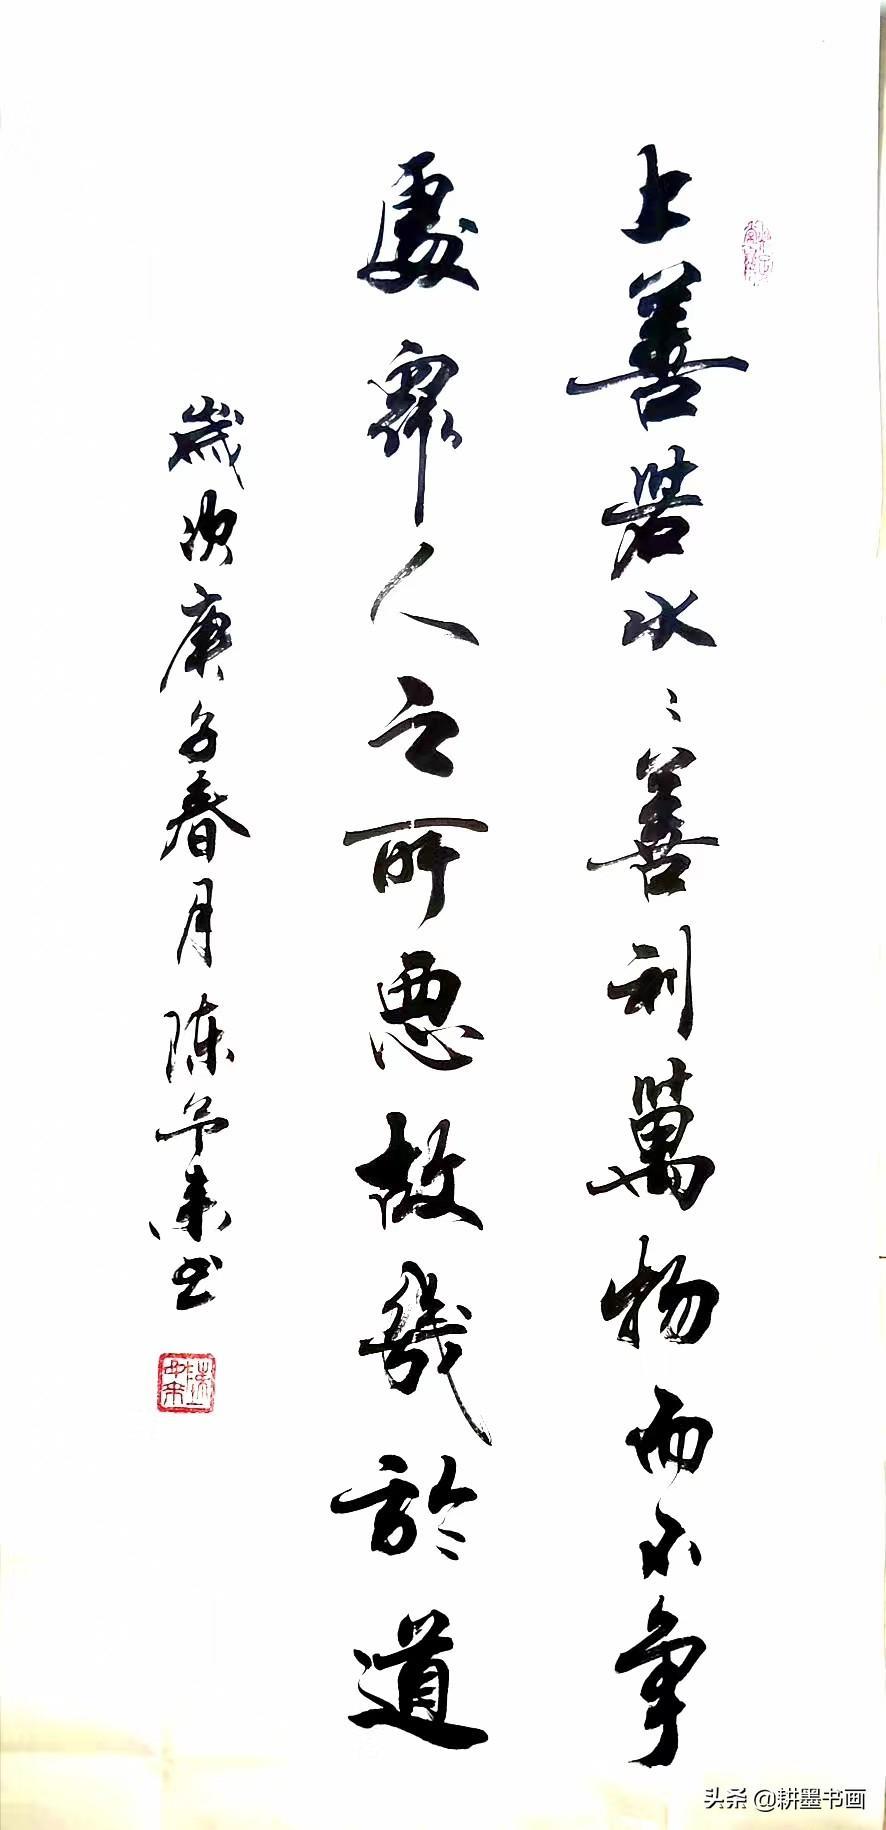 上善若水〻善利萬物而不争
處衆人之所惡故幾於道
歲次庚子春月陈予来书
头条 @耕墨书画